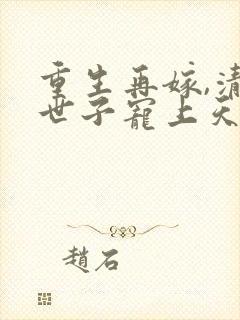 重生再嫁,清
世子寵上天
趙石